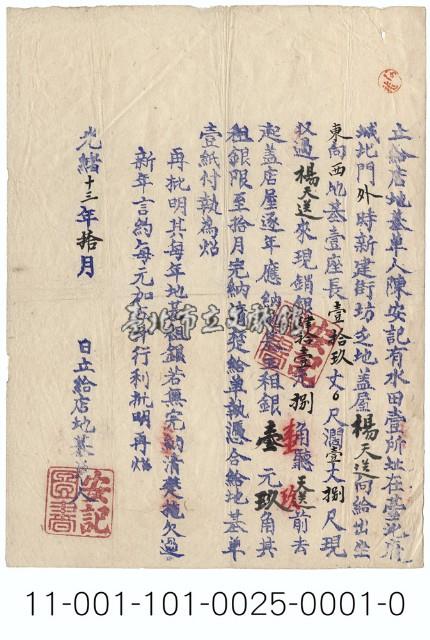 立給店地基單人陳安記有水田壹所址在臺北府
城北門外時新建街坊之地蓋屋楊天送向給出坐
東向西地基壹座長壹拾玖丈0尺濶壹丈捌尺現
収過楊天送來現銷銀肆拾壹元捌角聽天送前去
起蓋店屋逐年應納地基主租銀壹元玖角其
租銀限至拾月完納清楚給單執憑合給地基單
壹紙付執為炤
再批明其每年地基租銀若無完納清楚拖欠過
新年言約每元加五年行利批明再炤
光緒十三年拾月 日立給店地基單人
安記圖書
臺北市立文獻館
11-001-101-0025-0001-0